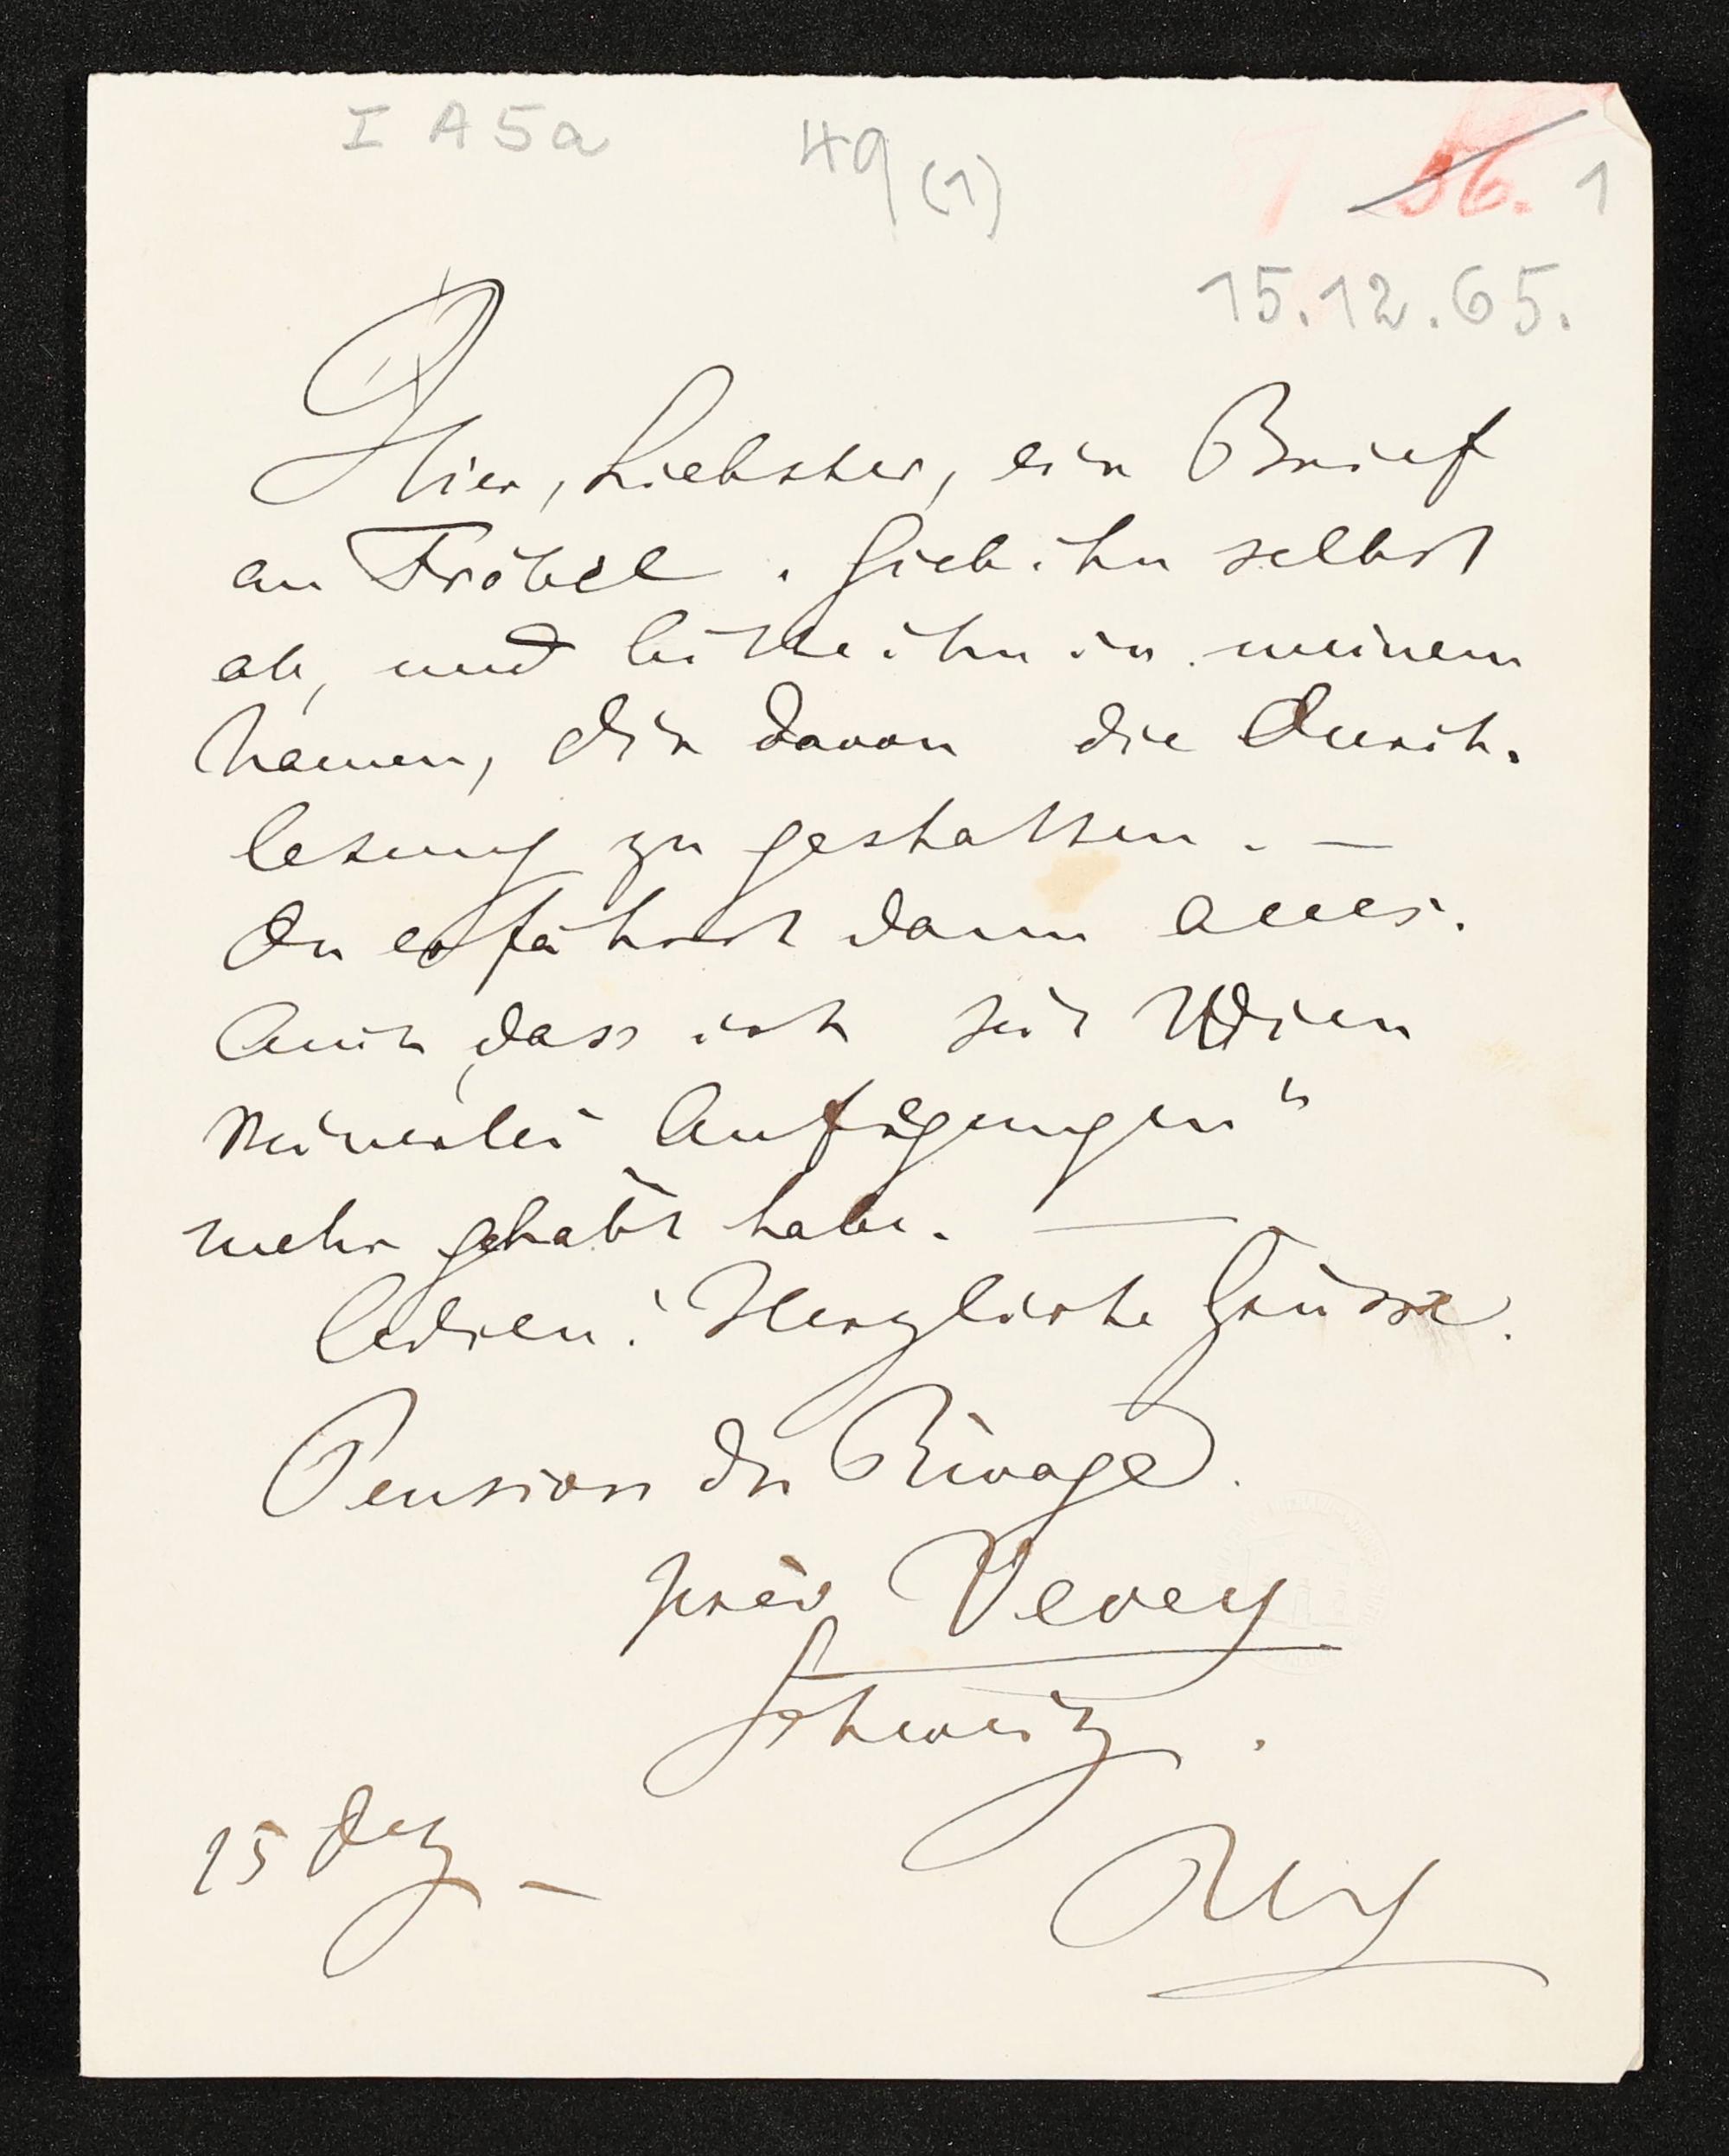 I A 5a 49 (1) 56. 1
15.12.65.
Hier, Liebster, ein Brief
an Fröbel. Gieb ihn selbst
ab, und bitte ihn in meinem
Namen, Dir davon die Durch-
lesung zu gestatten. —
Du erfährst dann alles.
Auch, dass ich seit Wien
keinerlei Aufregungen"
mehr gehabt habe. —
Adieu! Herzliche Grüsse.
Pension du Rivage.
près Vevey
Schweiz.
15 Dez —